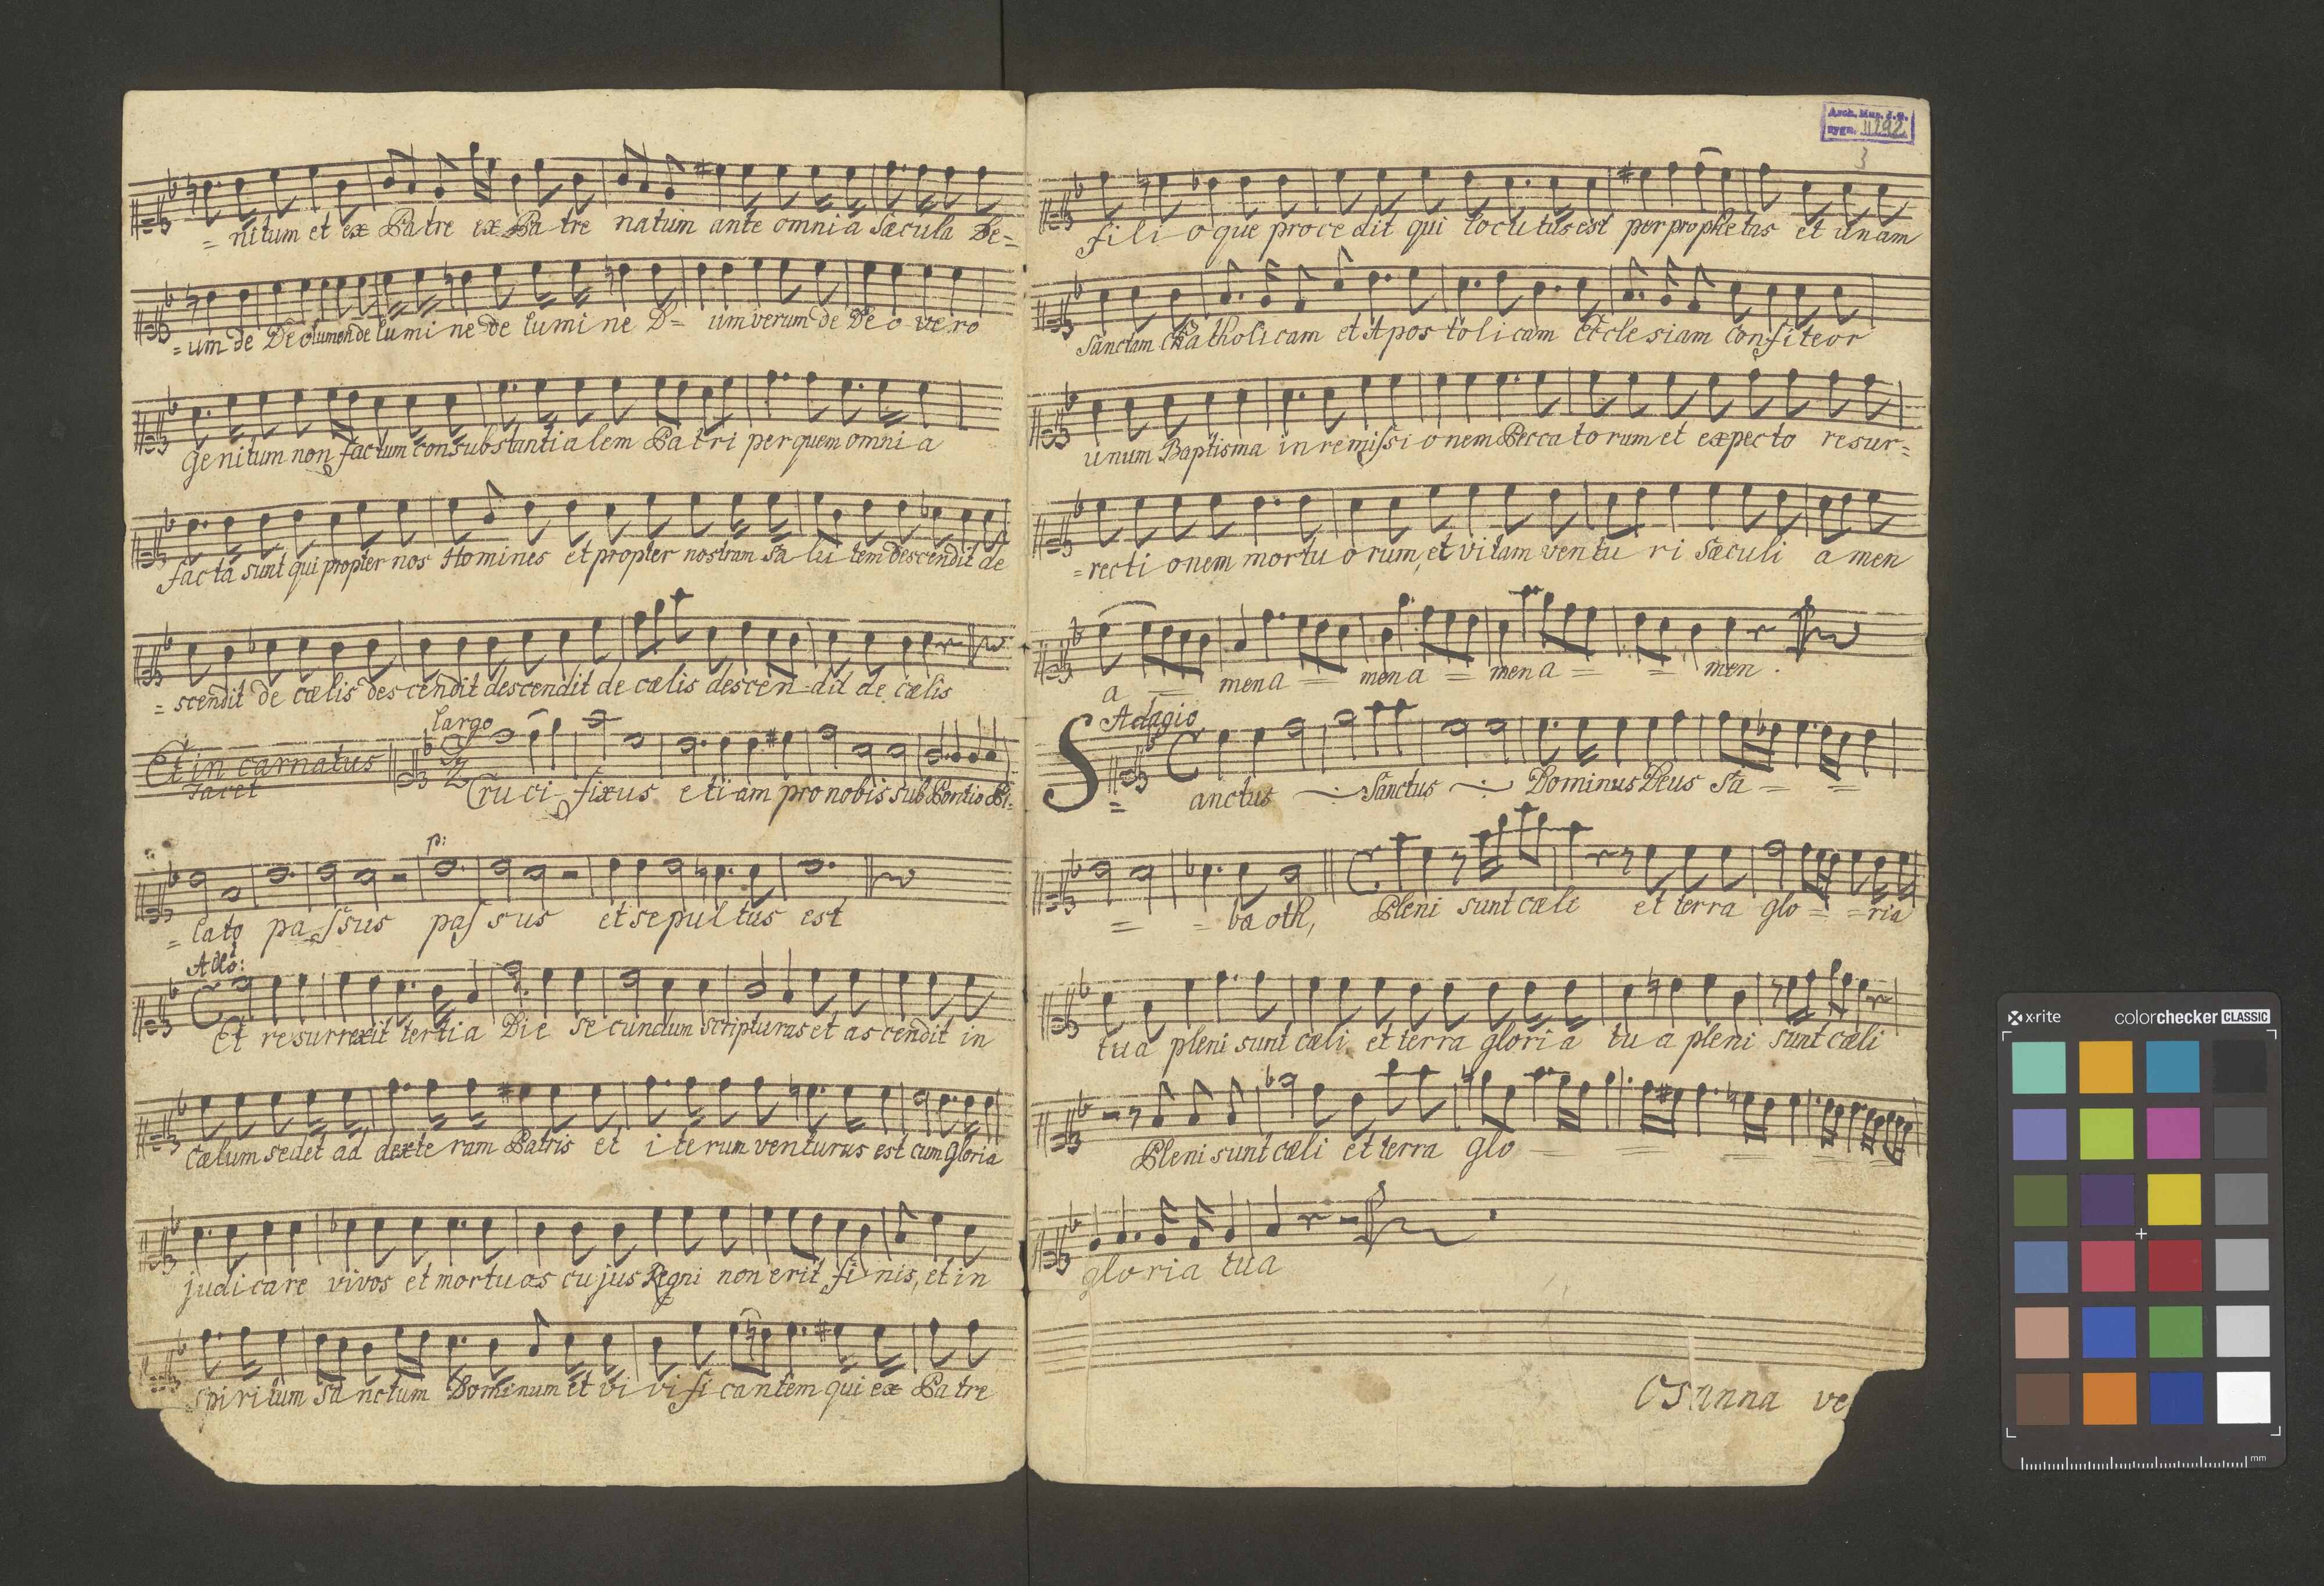 = nitum et ex Patre ex Pa tre natum ante omni a sæcula De=
= um de De o lumen de lu mi ne de lu mi ne D= um verum de De o ve ro
Ge ni tum non factum con substanti a lem Pa tri per quem omni a
facta sunt qui propter nos Homines et propter nostram sa lu tem descendit de
= scendit de cælis des cendit descendit de cælis descen= dit de cælis
largo
Et in carnatus
tacet
Cru ci fixus e ti am pro nobis sub Pontio Pi=
p:
= lato pa ssus pas sus et se pul tus est
Allo:
Et resurrexit tertia Die se cundum scripturas et as cendit in
cælum sedet ad dexte ram Patris et i te rum venturus est cum gloria
judi ca re vivos et mortu os cu jus Regni non erit fi nis, et in
spi ri tum Sa nctum Dominum et vi vi fi cantem qui ex Pa tre
Arch. Muz. J.G.
sygn. II 292
3
fi li o que proce dit qui locu tus est per prophe tas et unam
Sanctam Catholi cam et Apos to li cam Eccle siam confi te or
unum Baptisma in remissi onem Pecca to rum et expec to resur=
= recti onem mortu o rum, et vi tam ven tu ri sæculi a men
a = men a = men a = men a = = men.
Adagio
Sanctus Sanctus Dominus Deus Sa = =
= = ba oth, Pleni sunt cæli et terra glo = = ria
tu a pleni sunt cæli et terra glori a tu a pleni sunt cæli
Pleni sunt cæli et terra glo = = = = =
glo ria tu a
Osanna ve
x-rite
colorchecker CLASSIC
mm